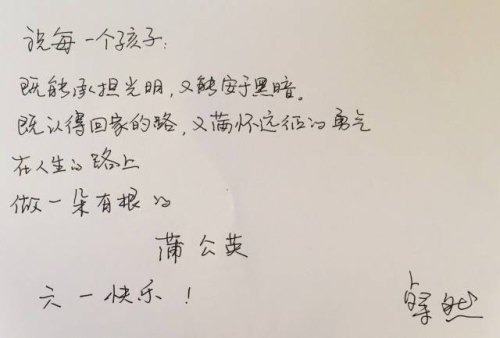 祝每一个孩子：
既能承担光明，又能安于黑暗。
既认得回家的路，又满怀远征的勇气
在人生的路上
做一朵有根的
蒲公英
六一快乐！
粲然